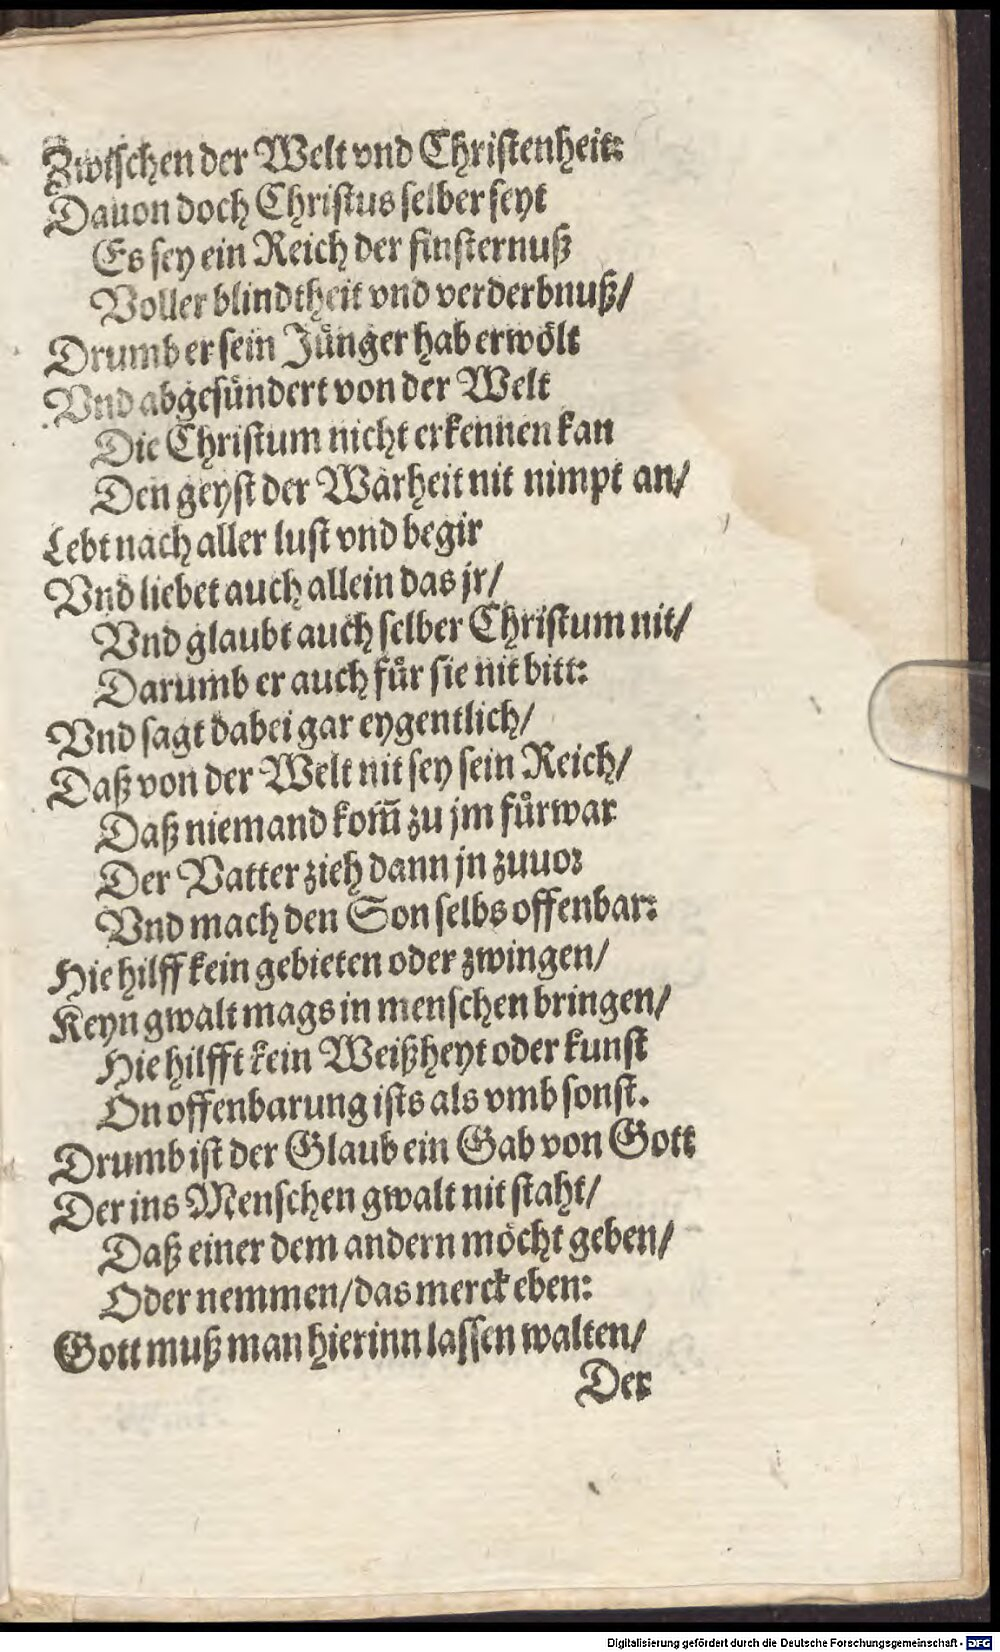 Zwischen der Welt vnd Christenheit:
Dauon doch Christus selber seyt
Es sey ein Reich der finsternuß
Voller blindtheit vnd verderbnuß/
Drumb er sein Jünger hab erwölt
Vnd abgesündert von der Welt
Die Christum nicht erkennen kan
Den geyst der Warheit nit nimpt an/
Lebt nach aller lust vnd begir
Vnd liebet auch allein das jr/
Vnd glaubt auch selber Christum nit/
Darumb er auch für sie nit bitt:
Vnd sagt dabei gar eygentlich/
Daß von der Welt nit sey sein Reich/
Daß niemand kom̄ zu jm fürwar
Der Vatter zieh dann jn zuuor
Vnd mach den Son selbs offenbar:
Hie hilff kein gebieten oder zwingen/
Keyn gwalt mags in menschen bringen/
Hie hilfft kein Weißheyt oder kunst
On offenbarung ists als vmb sonst.
Drumb ist der Glaub ein Gab von Gott
Der ins Menschen gwalt nit staht/
Daß einer dem andern möcht geben/
Oder nemmen/das merck eben:
Gott muß man hierinn lassen walten/
Der
Digitalisierung gefördert durch die Deutsche Forschungsgemeinschaft - DFG